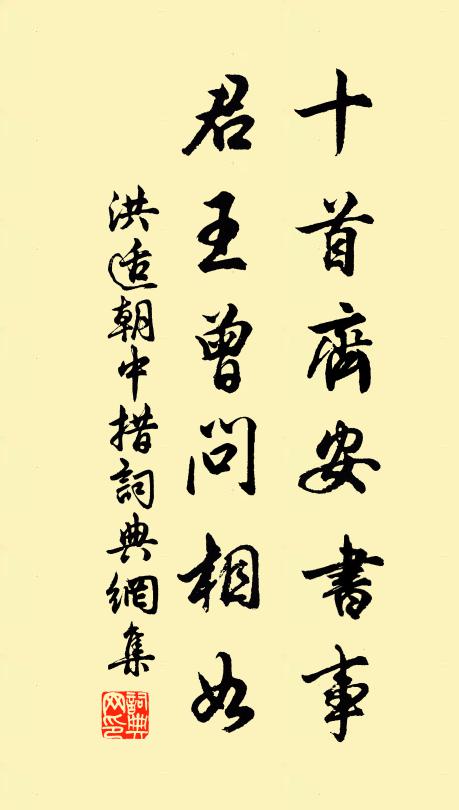 十首齊安書事
君王曾問相如
洪适朝中措詞典網集
詞典網印